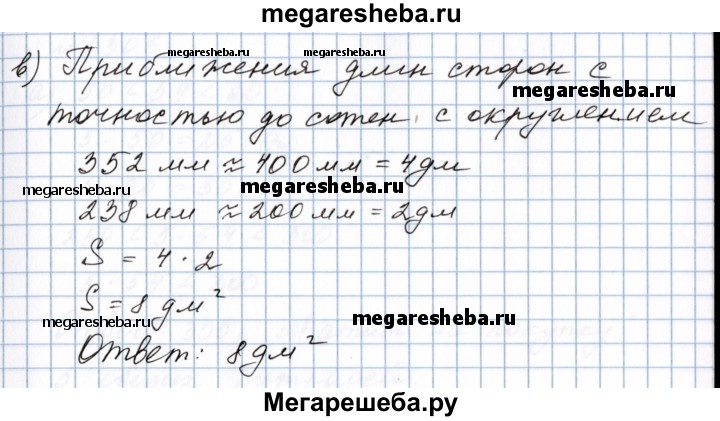 megaresheba.ru
в) Приближения длин сторон с
megaresheba.ru megaresheba.ru
megaresheba.ru
точностью до сотен с округлением
352 мм ≈ 400 мм = 4 дм
megaresheba.ru megaresheba.ru
238 мм ≈ 200 мм = 2 дм
S = 4 · 2
S = 8 дм²
megaresheba.ru megaresheba.ru
Ответ: 8 дм²
Мегарешеба.ру